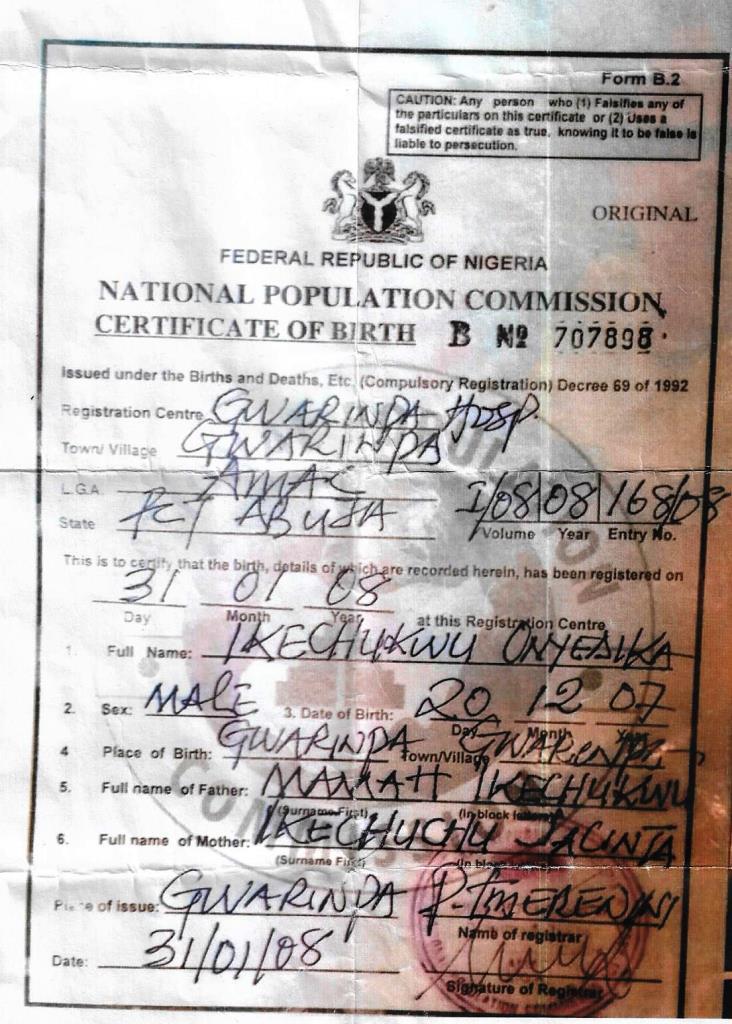 Form B.2
CAUTION: Any person who (1) Falsifies any of
the particulars on this certificate or (2) Uses a
falsified certificate as true, knowing it to be false is
liable to persecution.
ORIGINAL
FEDERAL REPUBLIC OF NIGERIA
NATIONAL POPULATION COMMISSION
CERTIFICATE OF BIRTH B No 707898
Issued under the Births and Deaths, Etc. (Compulsory Registration) Decree 69 of 1992
Registration Centre GWARINPA HOSP.
Town/ Village GWARINPA
L.G.A. AMAC
State FCT ABUJA I/08 08 168/08
Volume Year Entry No.
This is to certify that the birth, details of which are recorded herein, has been registered on
31 01 08
Day Month Year at this Registration Centre
1. Full Name: IKECHUKWU ONYEDIKA
2. Sex: MALE 3. Date of Birth: 20 12 07
Day Month Year
4 Place of Birth: GWARINPA Town/Village GWARENPA
5. Full name of Father: MAMAH IKECHUKWU
(Surname First) (In block letters)
6. Full name of Mother: IKECHUCHU JACINTA
(Surname First) (In block
Place of issue: GWARINPA
Name of registrar
Date: 31/01/08
Signature of Registrar